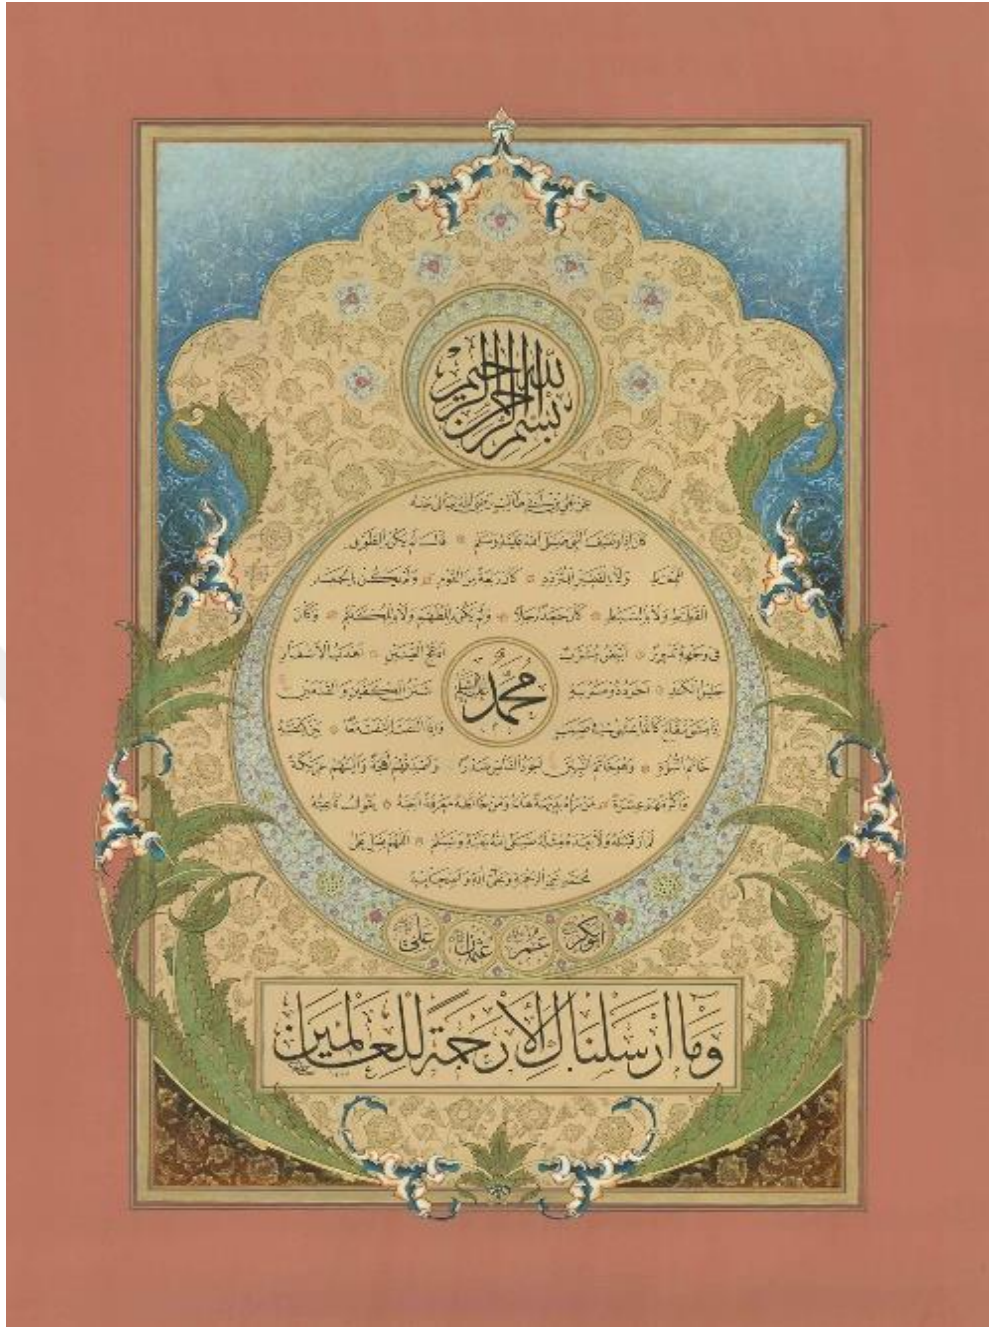 بسم الله الرحمن الرحيم
عن علي بن أبي طالب رضي الله تعالى عنه
كان إذا وصف النبي صلى الله عليه وسلم قال لم يكن بالطويل
الممغط ولا بالقصير المتردد كان ربعة من القوم ولم يكن بالجعد
القطط ولا بالسبط كان جعدا رجلا ولم يكن بالمطهم ولا بالمكلثم وكان
في وجهه تدوير أبيض مشرب أدعج العينين أهدب الأشفار
جليل الكتد أجرد ذو مسربة شثن الكفين والقدمين
محمد عليه السلام
إذا مشى تقلع كأنما يمشي في صبب وإذا التفت التفت معا بين كتفيه
خاتم النبوة وهو خاتم النبيين أجود الناس صدرا وأصدقهم لهجة وألينهم عريكة
وأكرمهم عشرة من رآه بديهة هابه ومن خالطه معرفة أحبه يقول ناعته
لم أر قبله ولا بعده مثله صلى الله عليه وسلم اللهم صل على
محمد نبي الرحمة وعلى آله وأصحابه
ابوبكر عمر عثمان علي
وما ارسلناك الا رحمة للعالمين